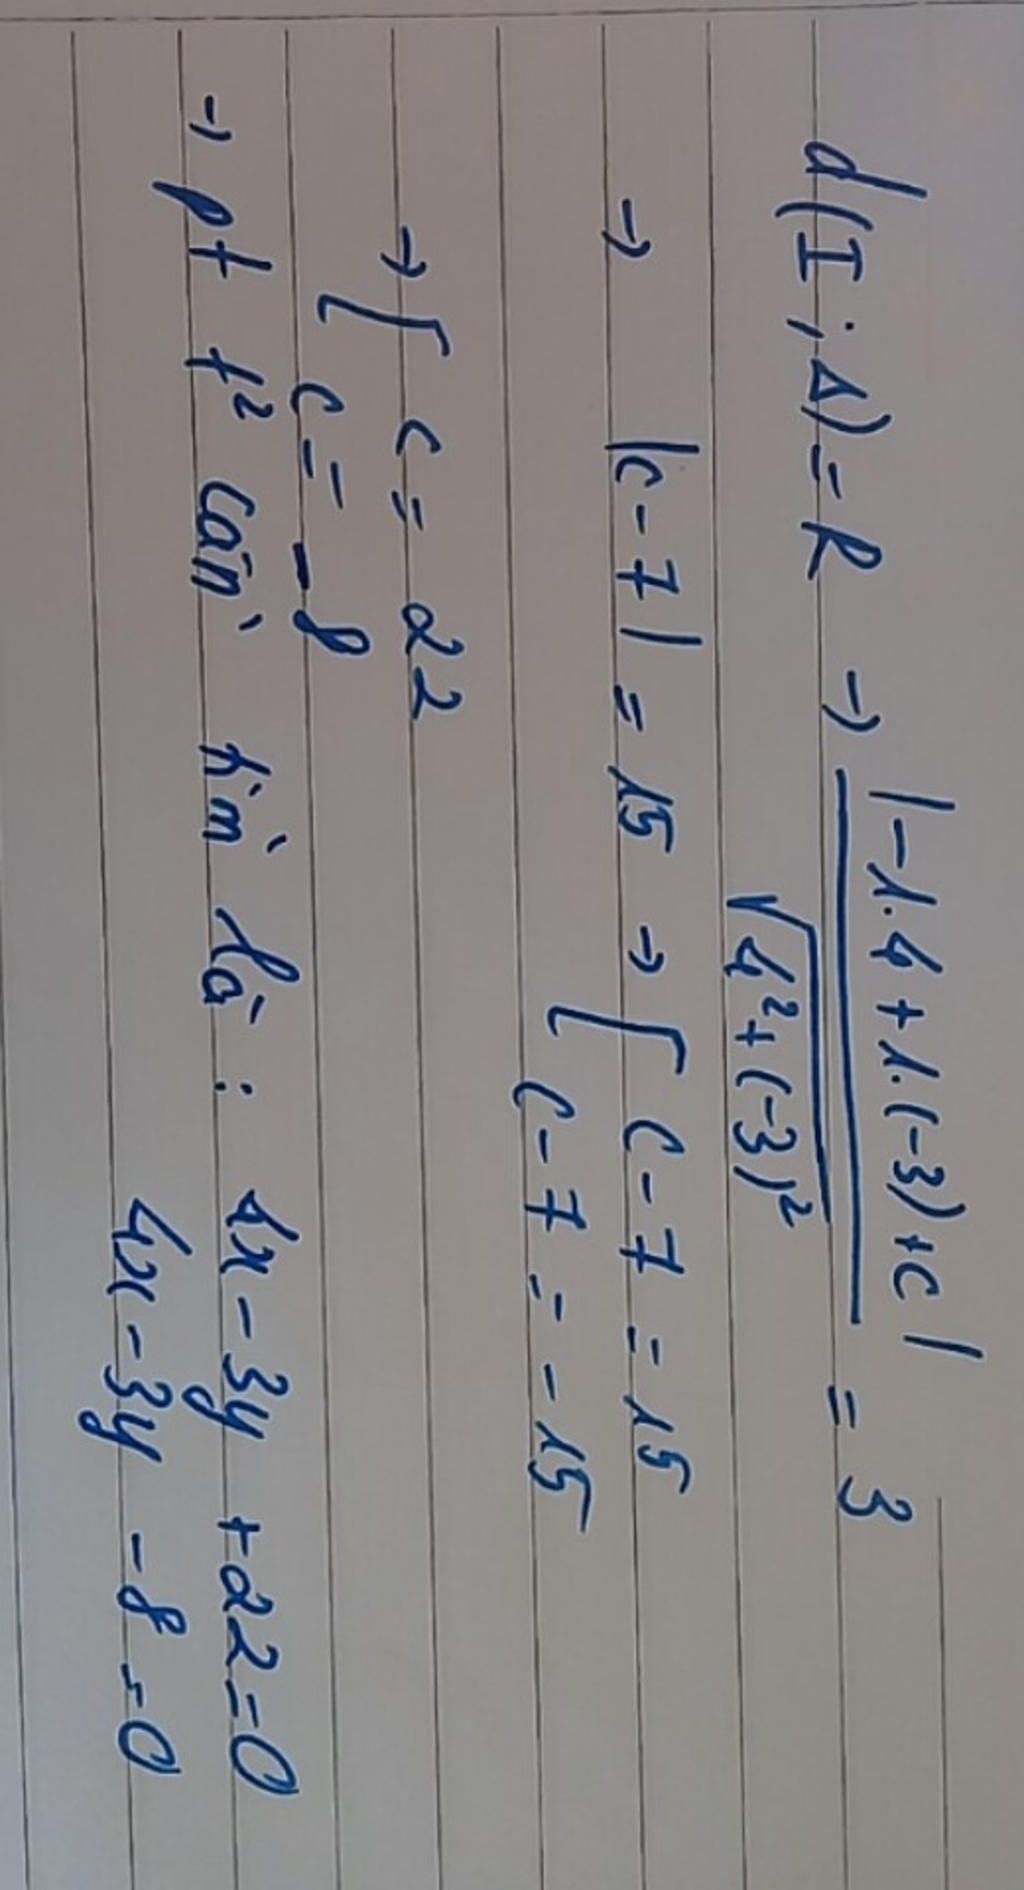 d(I; Δ) = R → |-1.4 + 1.(-3) + c| / √4² + (-3)² = 3
→ |c - 7| = 15 → [ c - 7 = 15
c - 7 = -15
→ [ c = 22
c = -8
→ pt t² cần tìm là : 4x - 3y + 22 = 0
4x - 3y - 8 = 0